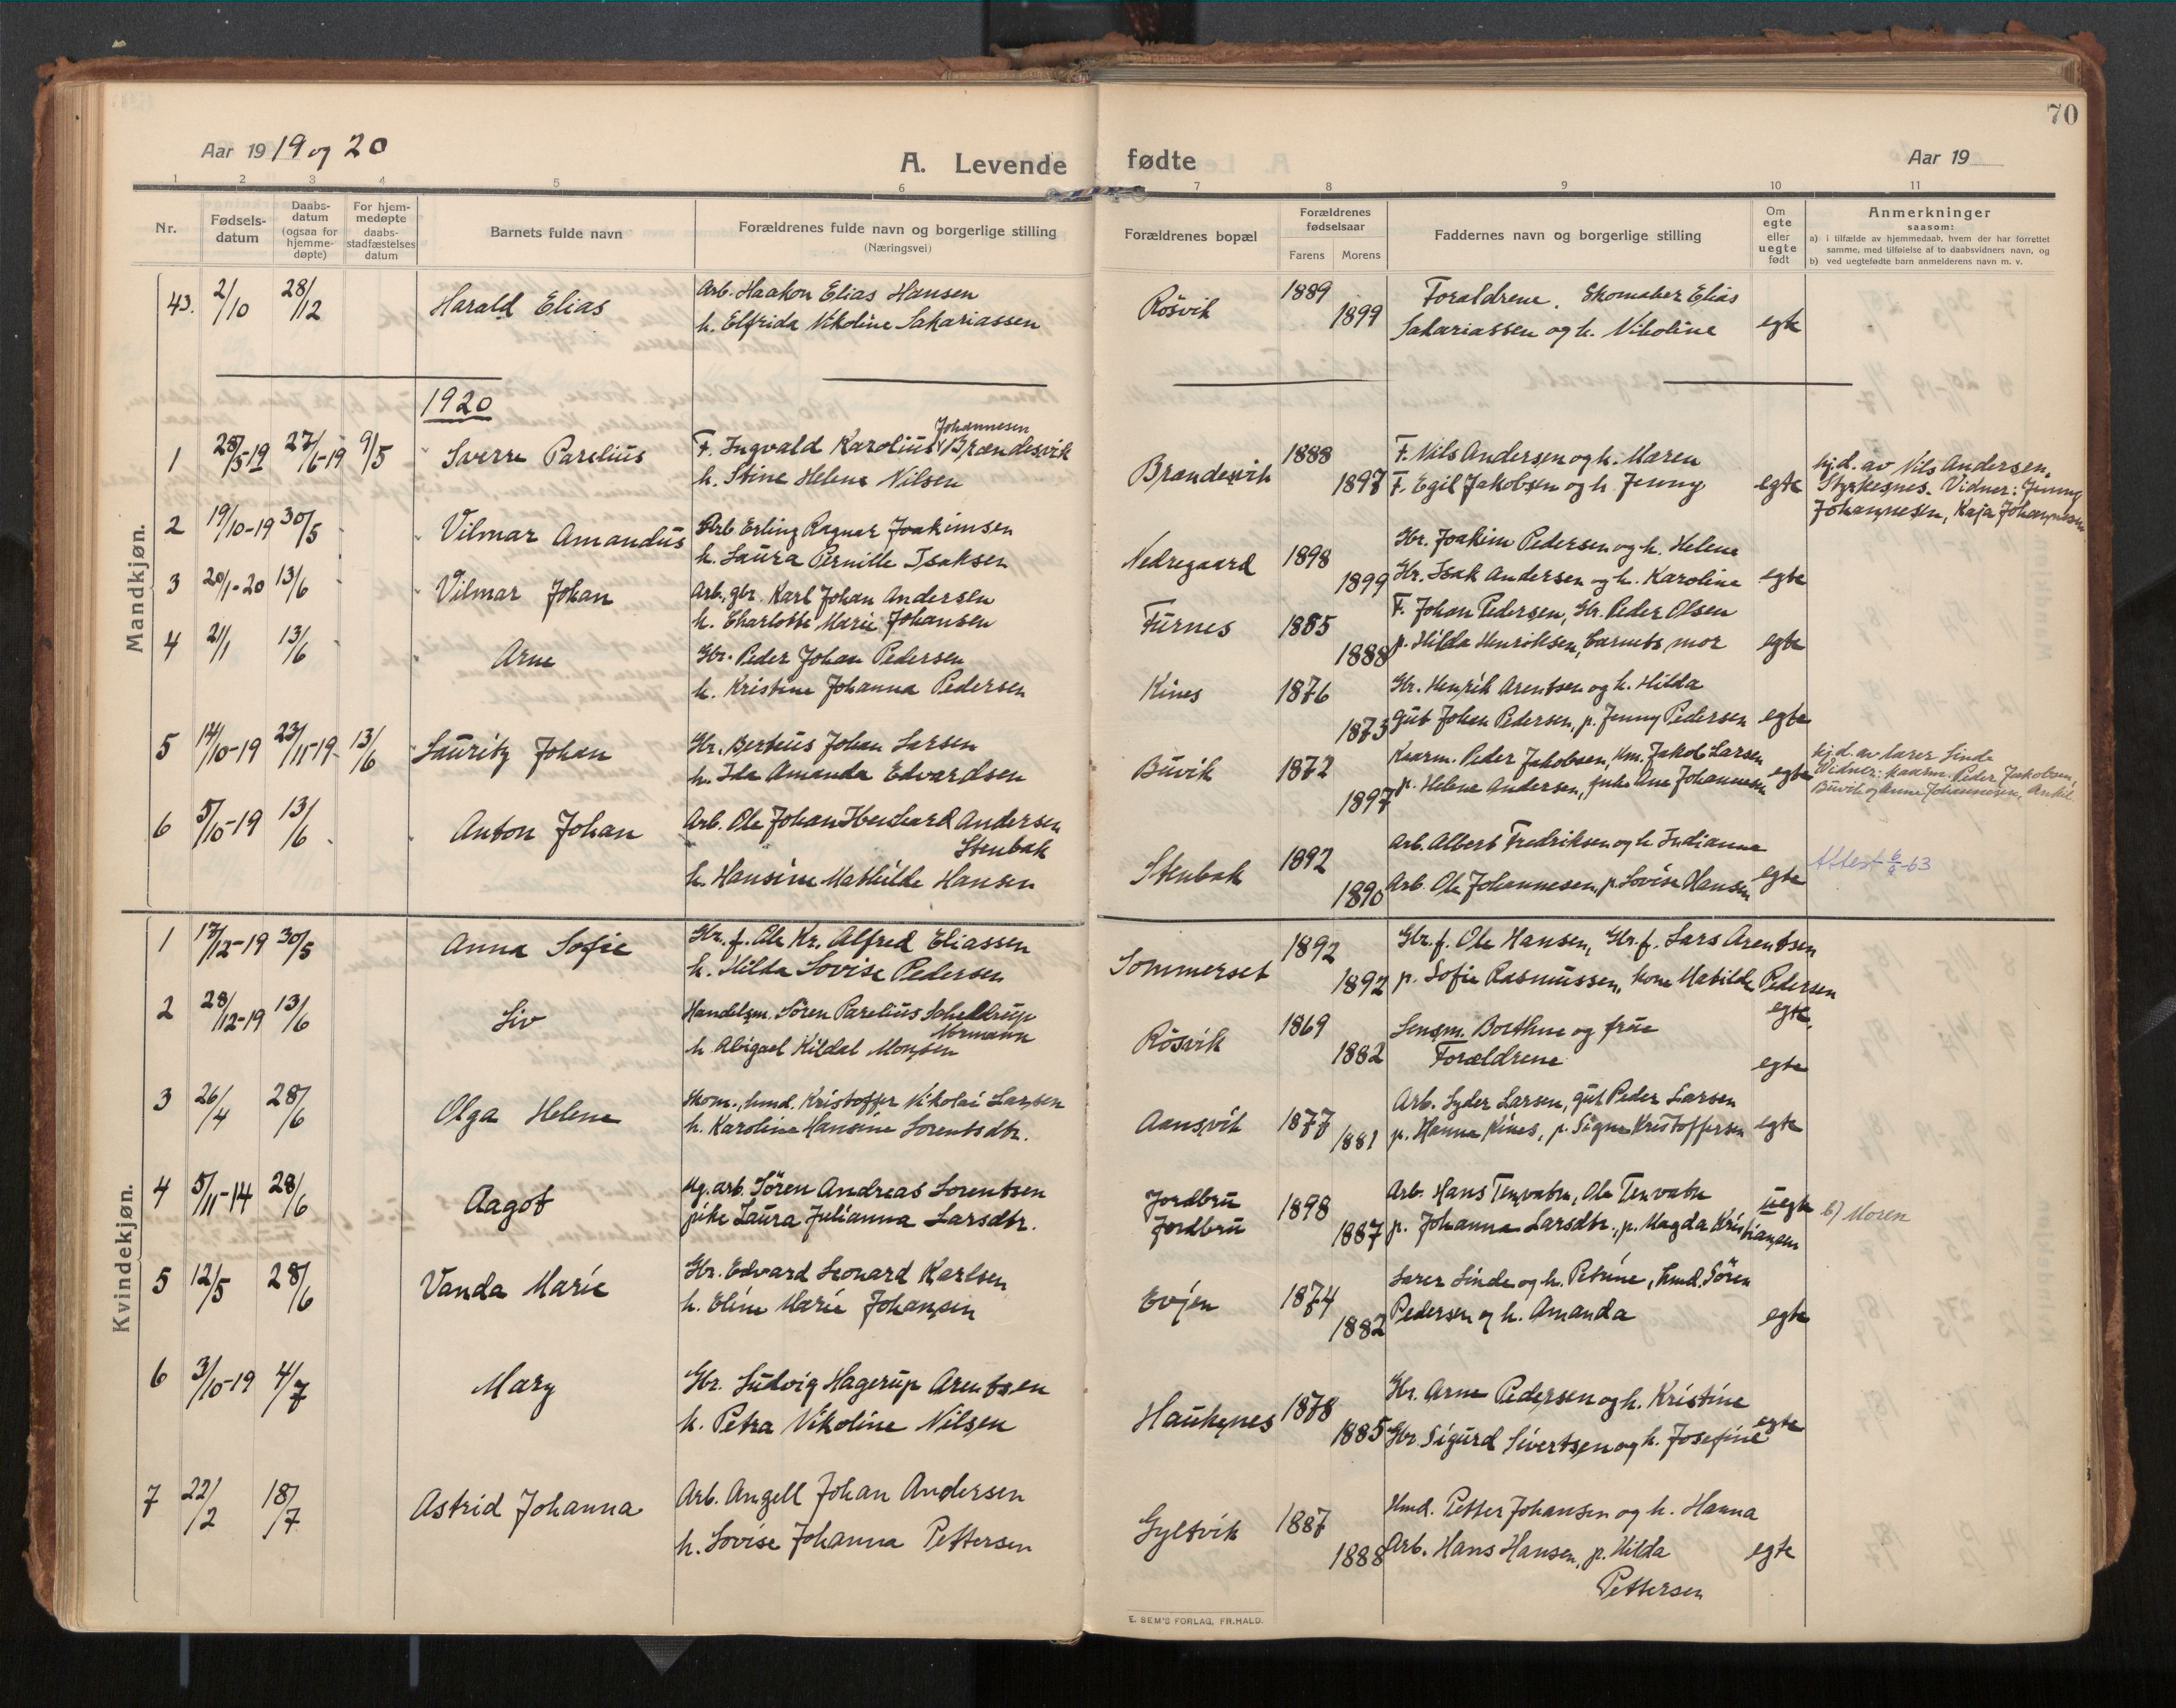 70
Aar 19 19 og 20
A. Levende fødte
Aar 19
1 2 3 4 5 6 7 8 9 10 11
Nr.
Fødsels-
datum
Daabs-
datum
(ogsaa for
hjemme-
døpte)
For hjem-
medøpte
daabs-
stadfæstelses
datum
Barnets fulde navn
Forældrenes fulde navn og borgerlige stilling
(Næringsvei)
Forældrenes bopæl
Forældrenes
fødselsaar
Farens Morens
Faddernes navn og borgerlige stilling
Om
egte
eller
uegte
født
Anmerkninger
saasom:
a) i tilfælde av hjemmedaab, hvem der har forrettet
samme, med tilføielse af to daabsvidners navn, og
b) ved uegtefødte barn anmelderens navn m. v.
Mandkjøn.
43. 2/10 28/12 Harald Elias Arb. Haakon Elias Hansen Røsvik 1889 Forældrene. Skomaker Elias
h. Elfrida Nikoline Sakariassen 1899 Sakariassen og h. Nikoline egte
1920
1 28/5-19 27/6-19 9/5 Sverre Parelius F. Ingvald Karolius Johannesen Brændesvik Brændesvik 1888 F. Nils Andersen og h. Maren
h. Stine Helene Nilsen 1897 F. Egil Jakobsen og h. Jenny egte
hj.d. av Nils Andersen,
Styrkesnes. Vidner: Jenny
Johannesen, Kaja Johannesen
2 19/10-19 30/5 Vilmar Amandus Arb. Erling Ragnar Joakimsen Nedregaard 1898 Gbr. Joakim Pedersen og h. Helene
h. Laura Pernille Isaksen 1899 Gbr. Isak Andersen og h. Karoline egte
3 20/1-20 13/6 Vilmar Johan Arb., gbr. Karl Johan Andersen Furnes 1885 F. Johan Pedersen, Gbr. Peder Olsen
h. Charlotte Marie Johansen 1888 p. Hilda Henriksen, barnets mor egte
4 21/1 13/6 Arne Gbr. Peder Johan Pedersen Kines 1876 Gbr. Henrik Arentsen og h. Hilda
h. Kristine Johanna Pedersen 1873 gut Johan Pedersen, p. Jenny Pedersen egte
5 14/10-19 23/11-19 13/6 Lauritz Johan Gbr. Berteus Johan Larsen Buvik 1872 Kaarm. Peder Jakobsen, Km. Jakob Larsen
h. Ida Amanda Edvardsen 1897 p. Helene Andersen, enke Ane Johannesen egte
hj.d. av lærer Linde
Vidner: kaarm. Peder Jakobsen,
Buvik og Anne Johannesen,
6 5/10-19 13/6 Anton Johan Arb. Ole Johan Ibenhard Andersen
Stenbak
h. Hansine Mathilde Hansen
Stenbak 1892 Arb. Albert Fredriksen og h. Indianna
1890 Arb. Ole Johannesen, p. Lovise Hansen egte
Attest 6/2-63
Kvindekjøn.
1 17/12-19 30/5 Anna Sofie Gbr. f. Ole Kr. Alfred Eliassen Sommerset 1892 Gbr. f. Ole Hansen, Gbr. f. Lars Arentsen
h. Hilda Lovise Pedersen 1892 p. Sofie Rasmussen, kone Matilde Pedersen
egte,
2 28/12-19 13/6 Liv Handelsm. Søren Parelius Scheldrup
Mormann
h. Abigael Kildal Monsen
Røsvik 1869 Lensm. Boethne og frue
1882 Forældrene egte
3 26/4 28/6 Olga Helene Skom., hmd. Kristoffer Nikolai Larsen Aansvik 1877 Arb. Lyder Larsen, gut Peder Larsen
h. Karoline Hansine Lorentsdtr. 1881 p. Hanna Kines, p. Signe Kristoffersen egte
4 5/11-14 28/6 Aagot Ug. arb. Søren Andreas Lorentsen Jordbru 1898 Arb. Hans Tenvatn, Ole Tenvatn uegte
pike Laura Julianna Larsdtr. Jordbru 1887 p. Johanna Larsdtr., p. Magda Kristiansen
b) Moren
5 12/5 28/6 Vanda Marie Gbr. Edvard Leonard Karlsen Evjen 1874 Lærer Linde og h. Petrine, hmd. Søren
h. Eline Marie Johansen 1882 Pedersen og h. Amanda egte
6 3/10-19 4/7 Mary Gbr. Ludvig Hagerup Arentsen Haukenes 1878 Gbr. Arne Pedersen og h. Kristine
h. Petra Nikoline Nilsen 1885 Gbr. Sigurd Sivertsen og h. Josefine egte
7 22/2 18/7 Astrid Johanna Arb. Angell Johan Andersen Gyltvik 1887 Hmd. Petter Johansen og h. Hanna
h. Lovise Johanna Pettersen 1888 Arb. Hans Hansen, p. Hilda egte
Pettersen
E. SEM'S FORLAG, FR.HALD.